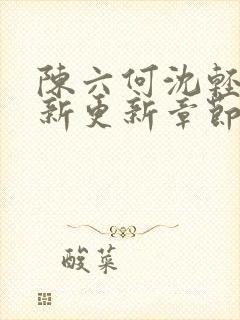 陳六何沈輕
新更新章節
酸菜